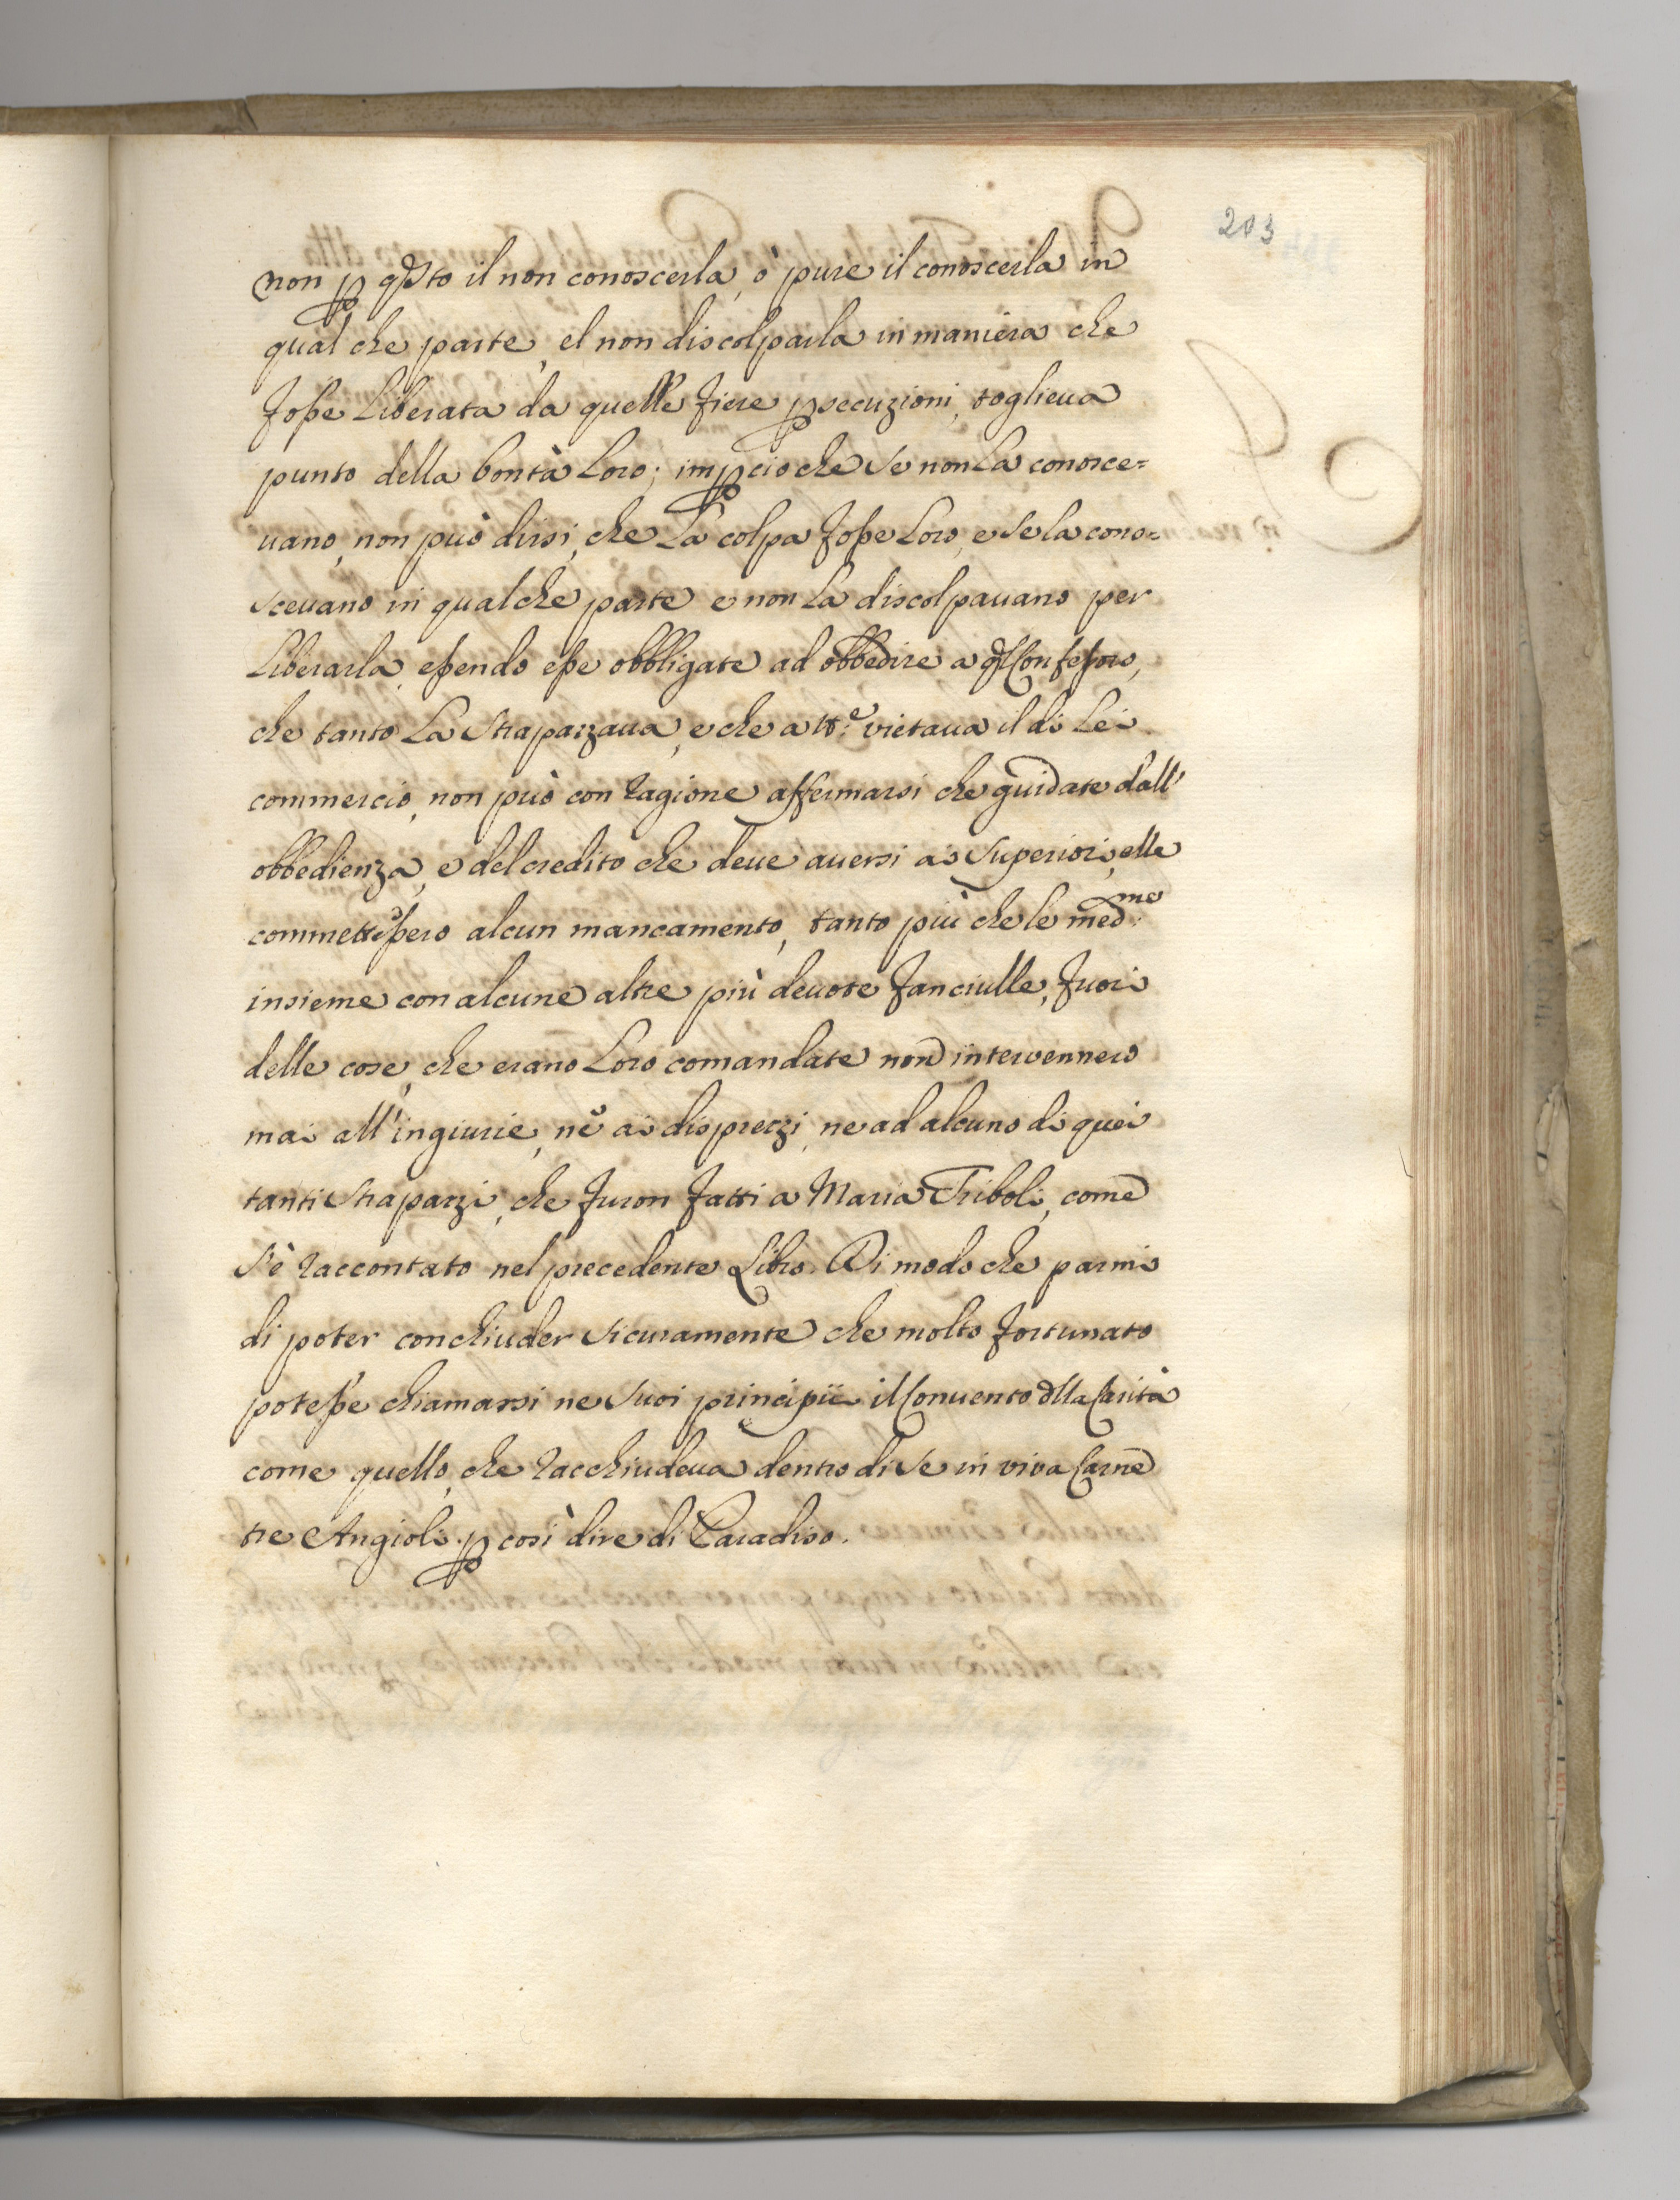 203
non p qsto il non conoscerla, ò pure il conoscerla in
qual che parte, el non discolparla in maniera che
fosse Liberata da quelle fiere psecuzioni, toglieua
punto della bontà Loro; impcioche se non La conosce=
uano, non può dirsi, che La colpa fosse Loro, e se la cono=
sceuano in qualche parte e non La discolpauano per
Liberarla, essendo esse obbligate ad obbedire a ql Confessore,
che tanto La strapazzaua, e che a tt.e vietaua il di Lei
commercio, non può con ragione affermarsi che guidate dall'
obbedienza, e del credito che deue auersi ai Superiori, elle
commettessero alcun mancamento, tanto più che le med.me
insieme con alcune altre più deuote fanciulle, fuori
delle cose, che erano Loro comandate non interuennero
mai all'ingiurie, nè ai disprezzi, ne ad alcuno di quei
tanti strapazzi, che furon fatti a Maria Triboli, come
s'è raccontato nel precedente Libro. Di modo che parmi
di poter conchiuder sicuramente che molto fortunato
potesse chiamarsi ne suoi principii il Conuento dlla Carità
come quello, che racchiudeua dentro di se in viva Carne
tre Angioli p così dire di Paradiso.